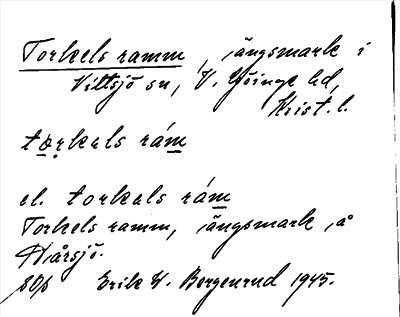 Torkels ramm, ängsmark i
Vittsjö sn, V. Göinge hd,
Krist. l.
torkals rám
el. torkals rám
Torkels ramm, ängsmark å
Hårsjö.
Erik W. Bergenrud 1945.